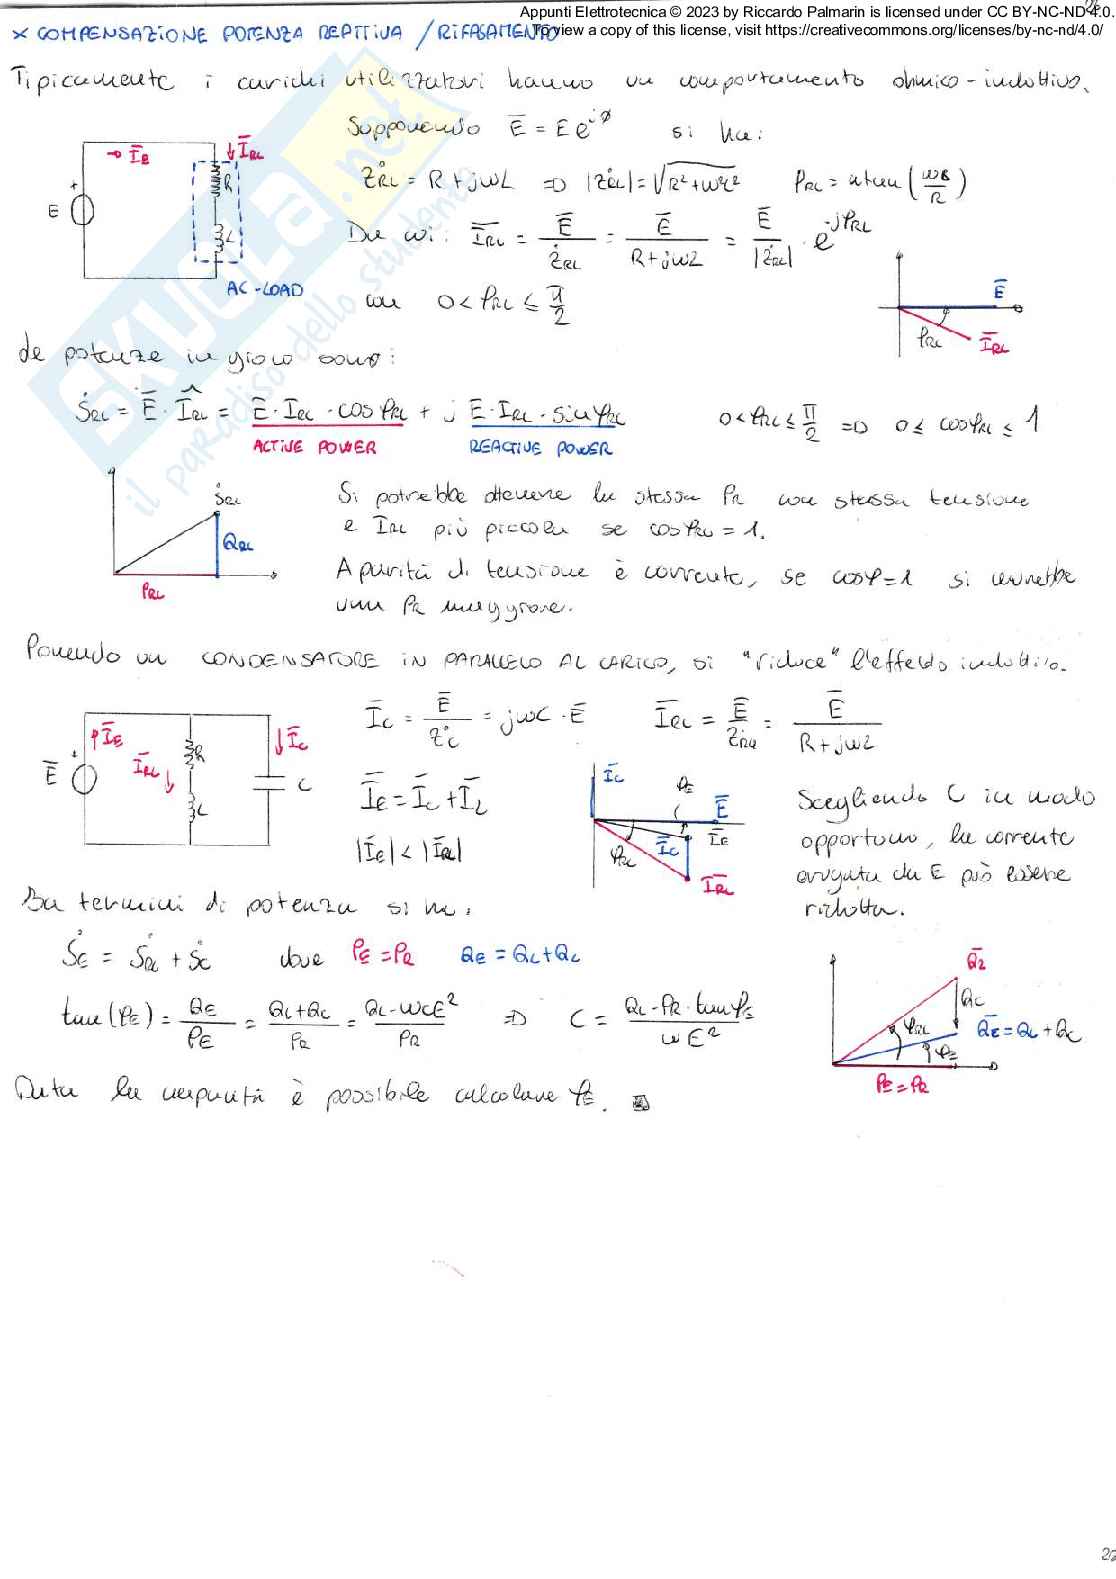 Appunti Elettrotecnica © 2023 by Riccardo Palmarin is licensed under CC BY-NC-ND 4.0.
To view a copy of this license, visit https://creativecommons.org/licenses/by-nc-nd/4.0/
× COMPENSAZIONE POTENZA REATTIVA / RIFASAMENTO
Tipicamente i carichi utilizzatori hanno un comportamento ohmico-induttivo.
Supponendo Ē = E e^{j0} si ha:
Ż_RL = R + jωL => |Ż_RL| = √(R²+ω²L²) φ_RL = atan(ωL/R)
Da cui: Ī_RL = Ē/Ż_RL = Ē/(R+jωL) = Ē/|Ż_RL| · e^{-jφ_RL}
con 0 < φ_RL ≤ π/2
E
Ī_E
Ī_RL
R
L
AC-LOAD
Ē
φ_RL
Ī_RL
Le potenze in gioco sono:
Ṡ_RL = Ē · Î_RL = E · I_RL · cosφ_RL + j E · I_RL · sinφ_RL 0 < φ_RL ≤ π/2 => 0 ≤ cosφ_RL ≤ 1
ACTIVE POWER REACTIVE POWER
Ṡ_RL
Q_RL
P_RL
Si potrebbe ottenere la stessa P_R con stessa tensione
e I_RL più piccola se cosφ_RL = 1.
A parità di tensione e corrente, se cosφ=1 si avrebbe
una P_R maggiore.
Ponendo un CONDENSATORE IN PARALLELO AL CARICO, si "riduce" l'effetto induttivo.
Ī_C = Ē/Ż_C = jωC · Ē Ī_RL = Ē/Ż_RL = Ē/(R+jωL)
Ē
Ī_E
Ī_RL
R
L
Ī_C
C
Ī_E = Ī_C + Ī_L
|Ī_E| < |Ī_RL|
Ī_C
φ_E
Ē
Ī_E
Ī_C
φ_RL
Ī_RL
Scegliendo C in modo
opportuno, la corrente
erogata da E può essere
ridotta.
In termini di potenza si ha:
Ṡ_E = Ṡ_RL + Ṡ_C dove P_E = P_R Q_E = Q_L + Q_C
tan(φ_E) = Q_E/P_E = (Q_L+Q_C)/P_R = (Q_L-ωCE²)/P_R => C = (Q_L - P_R · tanφ_E)/(ωE²)
Q̄_L
Q_C
φ_RL
Q̄_E = Q_L + Q_C
φ_E
P_E = P_R
Data la capacità è possibile calcolare φ_E.
22
SKUOLA.net
il paradiso dello studente